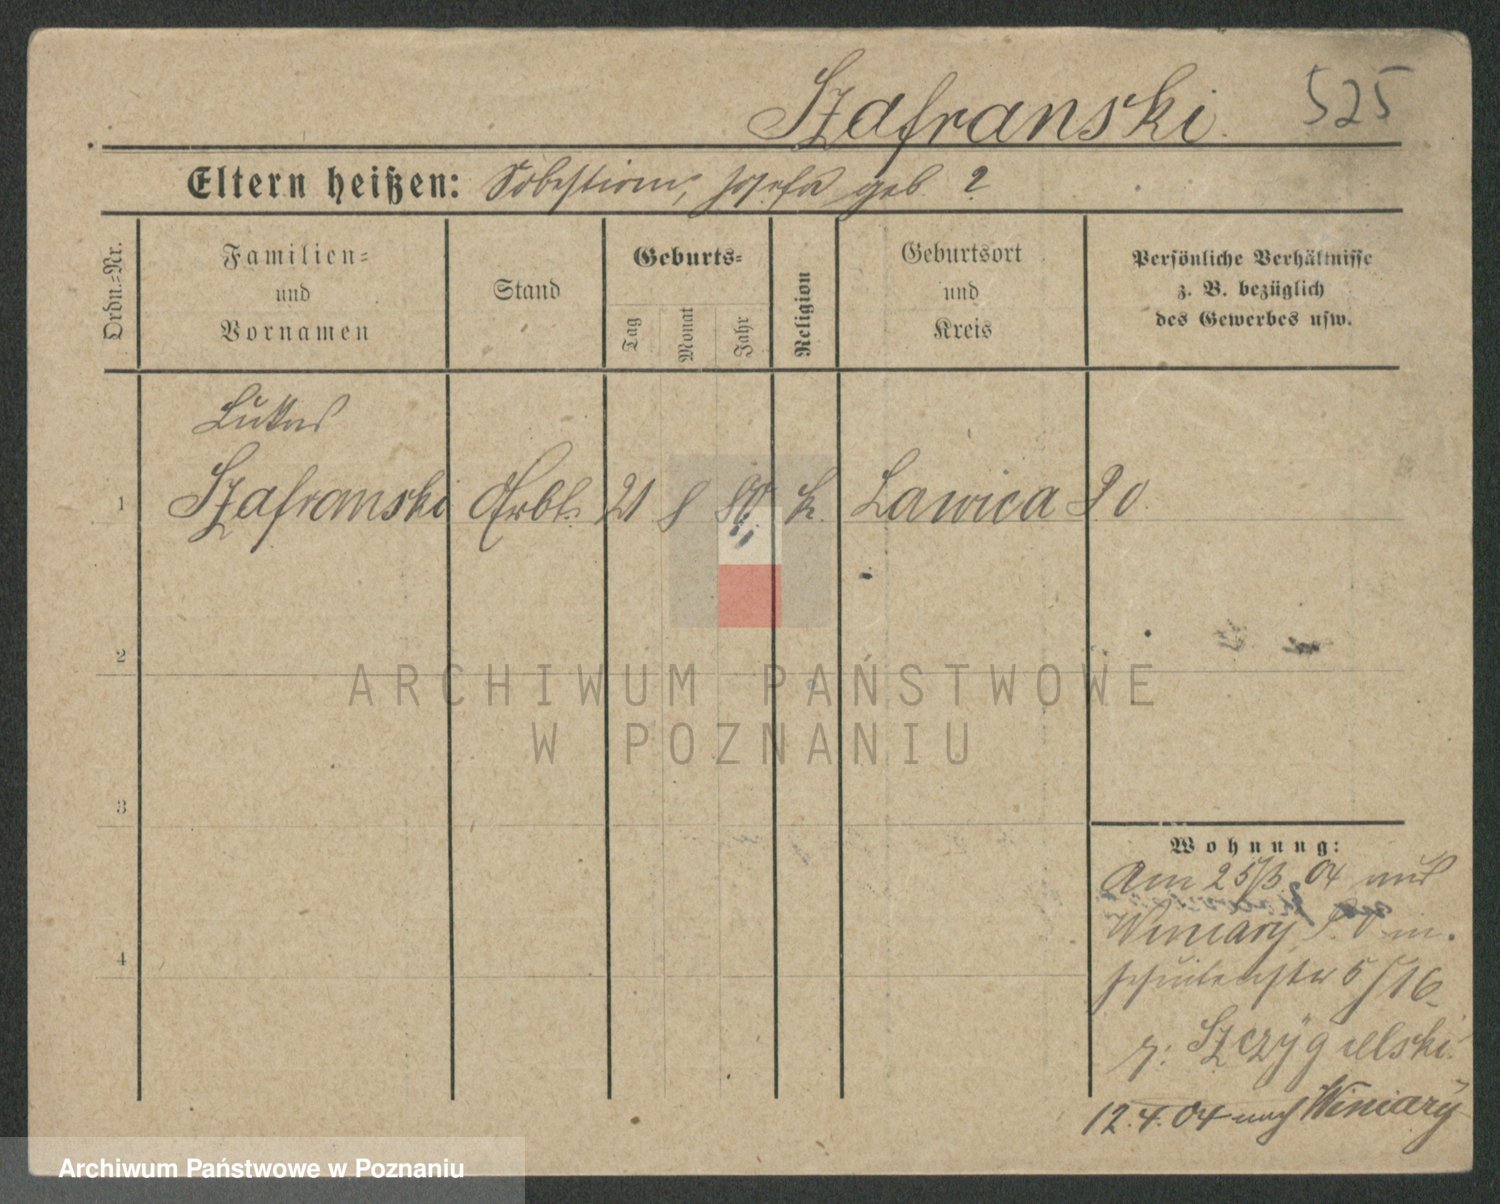 Szafranski 525
Eltern heißen: Sobestian, Josefa geb. ?
Ordn.-Nr.
Familien-
und
Vornamen
Stand
Geburts-
Tag
Monat
Jahr
Religion
Geburtsort
und
Kreis
Persönliche Verhältnisse
z. B. bezüglich
des Gewerbes usw.
Lukas
1 Szafranski Arbt. 21 8 80 k. Lawica PO
2
3
4
ARCHIWUM PAŃSTWOWE
W POZNANIU
Wohnung:
Am 25/3. 04 aus
Winiary
5/16
z: Szczygielski.
12.4.04 nach Winiary
Archiwum Państwowe w Poznaniu